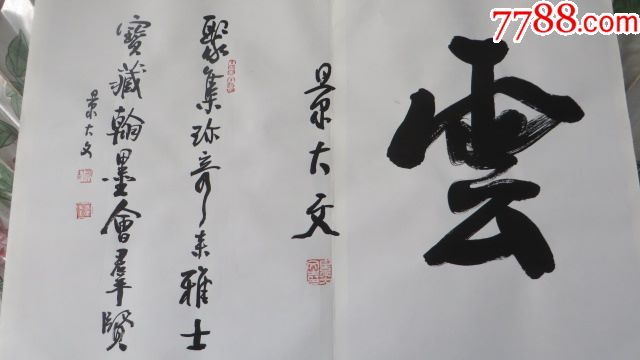 7788.com
雲
景大文
聚集珍奇来雅士
寶藏翰墨會羣賢
景大文